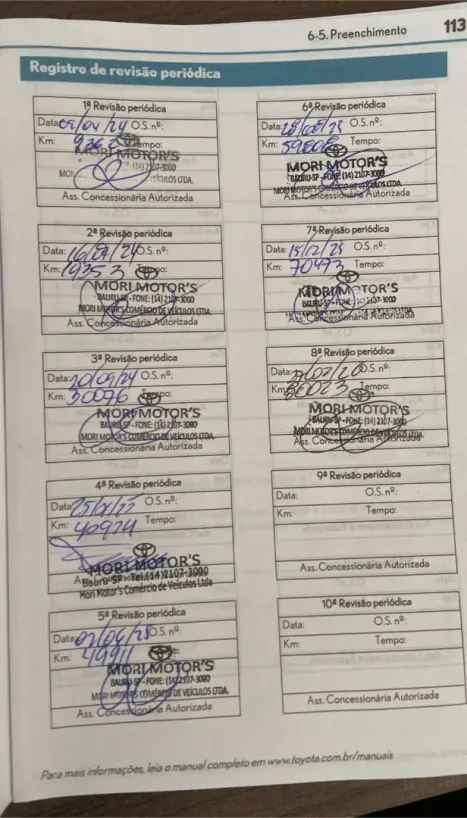 6-5. Preenchimento 113
Registro de revisão periódica
1ª Revisão periódica
Data: 09/04/24 O.S. nº:
Km: Tempo:
MORI MOTOR'S
FONE: (14) 2107-3000
VEÍCULOS LTDA.
Ass. Concessionária Autorizada
2ª Revisão periódica
Data: 16/07/24 O.S. nº:
Km: 19353 Tempo:
MORI MOTOR'S
BAURU-SP - FONE: (14) 2107-3000
MORI MOTOR'S COMÉRCIO DE VEÍCULOS LTDA.
Ass. Concessionária Autorizada
3ª Revisão periódica
Data: 20/09/24 O.S. nº:
Km: 30076 Tempo:
MORI MOTOR'S
BAURU-SP - FONE: (14) 2107-3000
MORI MOTOR'S COMÉRCIO DE VEÍCULOS LTDA.
Ass. Concessionária Autorizada
4ª Revisão periódica
Data: O.S. nº:
Km: 40924 Tempo:
MORI MOTOR'S
Bauru-SP-Tel.(14)2107-3000
Mori Motor's Comércio de Veículos Ltda
5ª Revisão periódica
Data: O.S. nº:
Km: 49911 Tempo:
MORI MOTOR'S
BAURU-SP - FONE: (14) 2107-3000
MORI MOTOR'S COMÉRCIO DE VEÍCULOS LTDA.
Ass. Concessionária Autorizada
6ª Revisão periódica
Data: O.S. nº:
Km: Tempo:
MORI MOTOR'S
BAURU-SP - FONE: (14) 2107-3000
MORI MOTOR'S COMÉRCIO DE VEÍCULOS LTDA.
Ass. Concessionária Autorizada
7ª Revisão periódica
Data: 15/12/25 O.S. nº:
Km: 70473 Tempo:
MORI MOTOR'S
BAURU-SP - FONE: (14) 2107-3000
MORI MOTOR'S COMÉRCIO DE VEÍCULOS LTDA.
Ass. Concessionária Autorizada
8ª Revisão periódica
Data: O.S. nº:
Km: 80023 Tempo:
MORI MOTOR'S
BAURU-SP - FONE: (14) 2107-3000
MORI MOTOR'S COMÉRCIO DE VEÍCULOS LTDA.
Ass. Concessionária Autorizada
9ª Revisão periódica
Data: O.S. nº:
Km: Tempo:
Ass. Concessionária Autorizada
10ª Revisão periódica
Data: O.S. nº:
Km: Tempo:
Ass. Concessionária Autorizada
Para mais informações, leia o manual completo em www.toyota.com.br/manuais